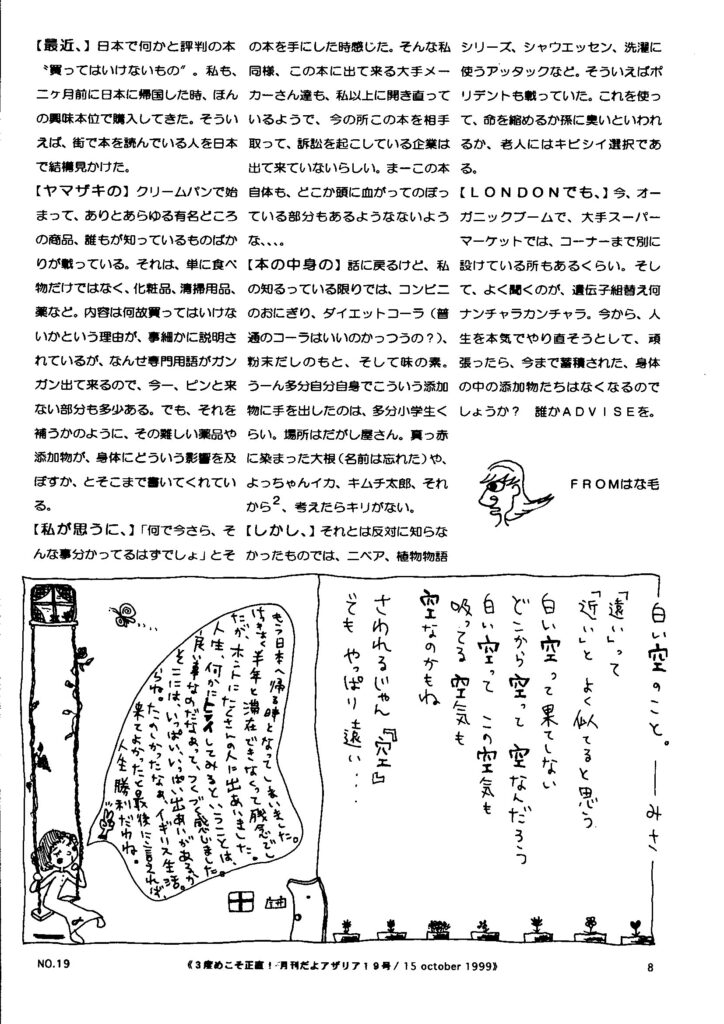 【最近、】日本で何かと評判の本
〝買ってはいけないもの〟。私も、
二ヶ月前に日本に帰国した時、ほん
の興味本位で購入してきた。そうい
えば、街で本を読んでいる人を日本
で結構見かけた。
【ヤマザキの】クリームパンで始
まって、ありとあらゆる有名どころ
の商品、誰もが知っているものばか
りが載っている。それは、単に食べ
物だけではなく、化粧品、清掃用品、
薬など。内容は何故買ってはいけな
いかという理由が、事細かに説明さ
れているが、なんせ専門用語がガン
ガン出て来るので、今一、ピンと来
ない部分も多少ある。でも、それを
補うかのように、その難しい薬品や
添加物が、身体にどういう影響を及
ぼすか、とそこまで書いてくれてい
る。
【私が思うに、】「何で今さら、そ
んな事分かってるはずでしょ」とそ
の本を手にした時感じた。そんな私
同様、この本に出て来る大手メー
カーさん達も、私以上に開き直って
いるようで、今の所この本を相手
取って、訴訟を起こしている企業は
出て来ていないらしい。まーこの本
自体も、どこか頭に血がってのぼっ
ている部分もあるようなないよう
な、、、。
【本の中身の】話に戻るけど、私
の知るっている限りでは、コンビニ
のおにぎり、ダイエットコーラ（普
通のコーラはいいのかっつうの？）、
粉末だしのもと、そして味の素。
うーん多分自分自身でこういう添加
物に手を出したのは、多分小学生く
らい。場所はだがし屋さん。真っ赤
に染まった大根（名前は忘れた）や、
よっちゃんイカ、キムチ太郎、それ
から２、考えたらキリがない。
【しかし、】それとは反対に知らな
かったものでは、ニベア、植物物語
シリーズ、シャウエッセン、洗濯に
使うアッタックなど。そういえばポ
リデントも載っていた。これを使っ
て、命を縮めるか孫に臭いといわれ
るか、老人にはキビシイ選択であ
る。
【ＬＯＮＤＯＮでも、】今、オー
ガニックブームで、大手スーパー
マーケットでは、コーナーまで別に
設けている所もあるくらい。そし
て、よく聞くのが、遺伝子組替え何
ナンチャラカンチャラ。今から、人
生を本気でやり直そうとして、頑
張ったら、今まで蓄積された、身体
の中の添加物たちはなくなるので
しょうか？　誰かＡＤＶＩＳＥを。
ＦＲＯＭはな毛
白い空のこと。――みさ――
「遠い」って
「近い」と よく似てると思う
白い空って果てしない
どこから空って 空なんだろう
白い空って この空気も
吸ってる空気も
空なのかもね
さわれるじゃん『空』
でも やっぱり 遠い・・・
もう日本へ帰る時となってしまいました。
けっきょく半年と滞在できなくって残念でし
たが、ホントにたくさんの人に出あいました。
人生、何かにトライしてみるということは、
良い事なのだなあって、つくづく感じました。
そこには、いっぱいいっぱい出あいがあるか
らね。たのしかったなぁ、イギリス生活。
来てよかったと最後に言えれば、
人生勝利だわね。
NO.19
《３度めこそ正直！・月刊だよアザリア１９号 / 15 october 1999》
8